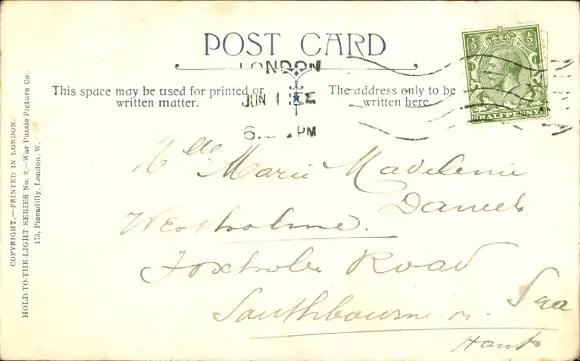 POST CARD
LONDON
JUN 1
6 PM
This space may be used for printed or
written matter.
The address only to be
written here.
HALFPENNY
COPYRIGHT.—PRINTED IN LONDON.
HOLD-TO-THE-LIGHT SERIES No. 2.—War Puzzle Picture Co.
175, Piccadilly, London, W.
Mdlle Marie Madelenie
Daniels
Westholme.
Foxholes Road
Southbourne on Sea
Hants